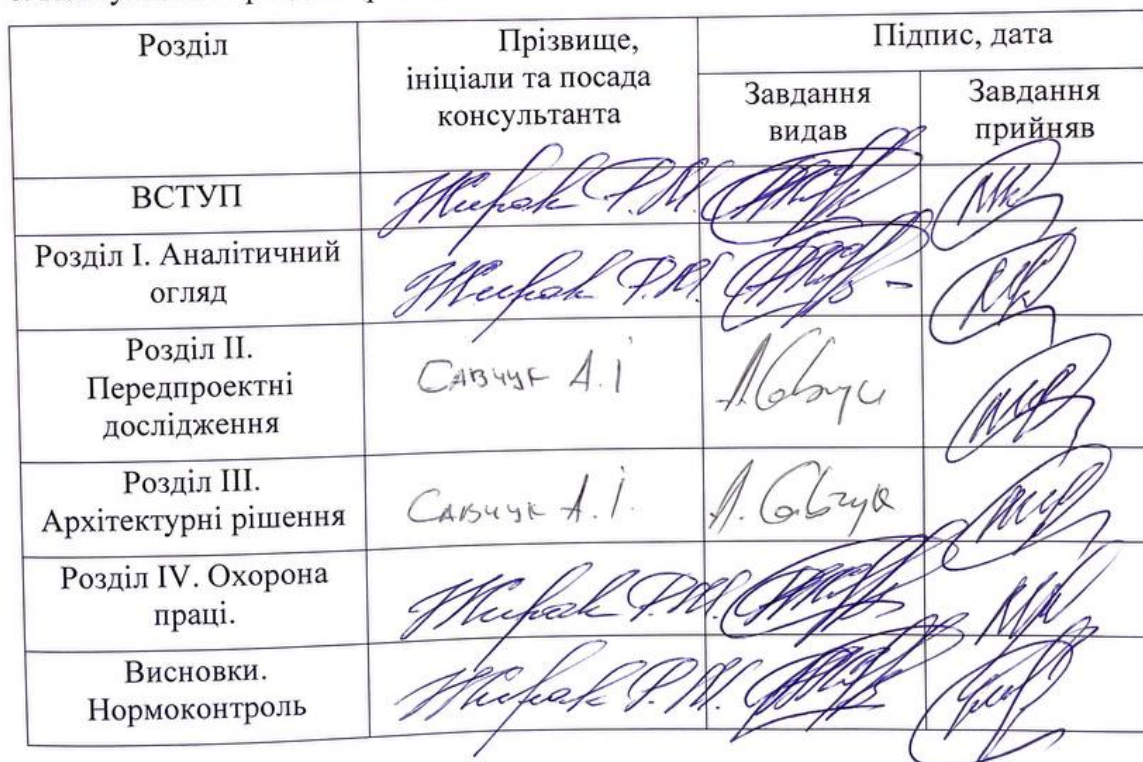 Розділ
Прізвище,
ініціали та посада
консультанта
Підпис, дата
Завдання
видав
Завдання
прийняв
ВСТУП
Жирак Р.М.
Розділ І. Аналітичний
огляд
Жирак Р.М.
Розділ ІІ.
Передпроектні
дослідження
Савчук А.І
А.Савчук
Розділ ІІІ.
Архітектурні рішення
Савчук А.І.
А.Савчук
Розділ IV. Охорона
праці.
Жирак Р.М.
Висновки.
Нормоконтроль
Жирак Р.М.